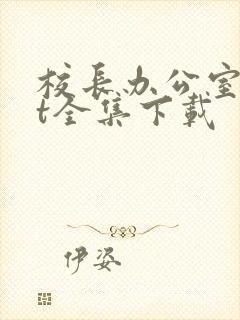 校长办公室
t全集下载
伊姿